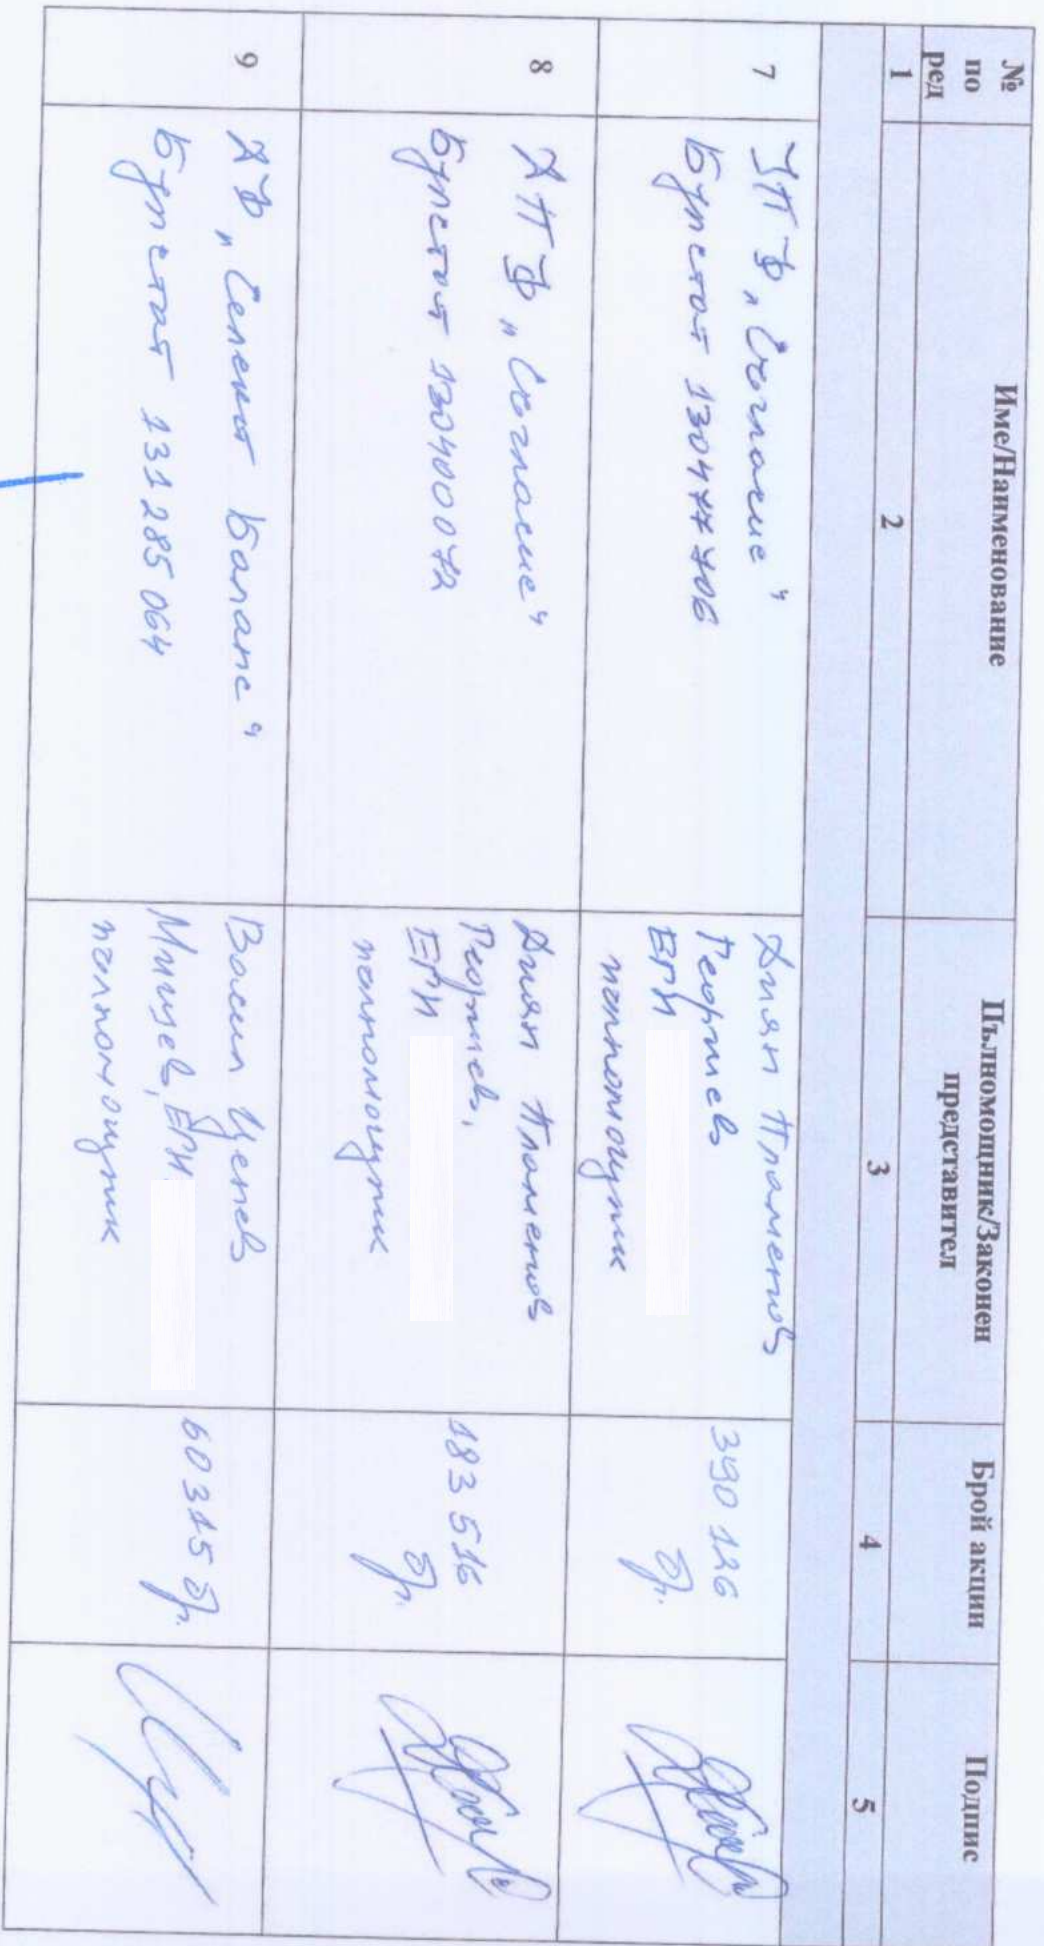 №
по
ред
Име/Наименование
Пълномощник/Законен
представител
Брой акции
Подпис
1
2
3
4
5
7
УПФ „Съгласие“
Булстат 130477706
Диян Пламенов
Георгиев
ЕГН
пълномощник
390 126
бр.
8
ДПФ „Съгласие“
Булстат 130400072
Диян Пламенов
Георгиев,
ЕГН
пълномощник
183 516
бр.
9
ДФ „Селект Баланс“
Булстат 131285064
Васил Ценев
ЕГН
пълномощник
60315 бр.